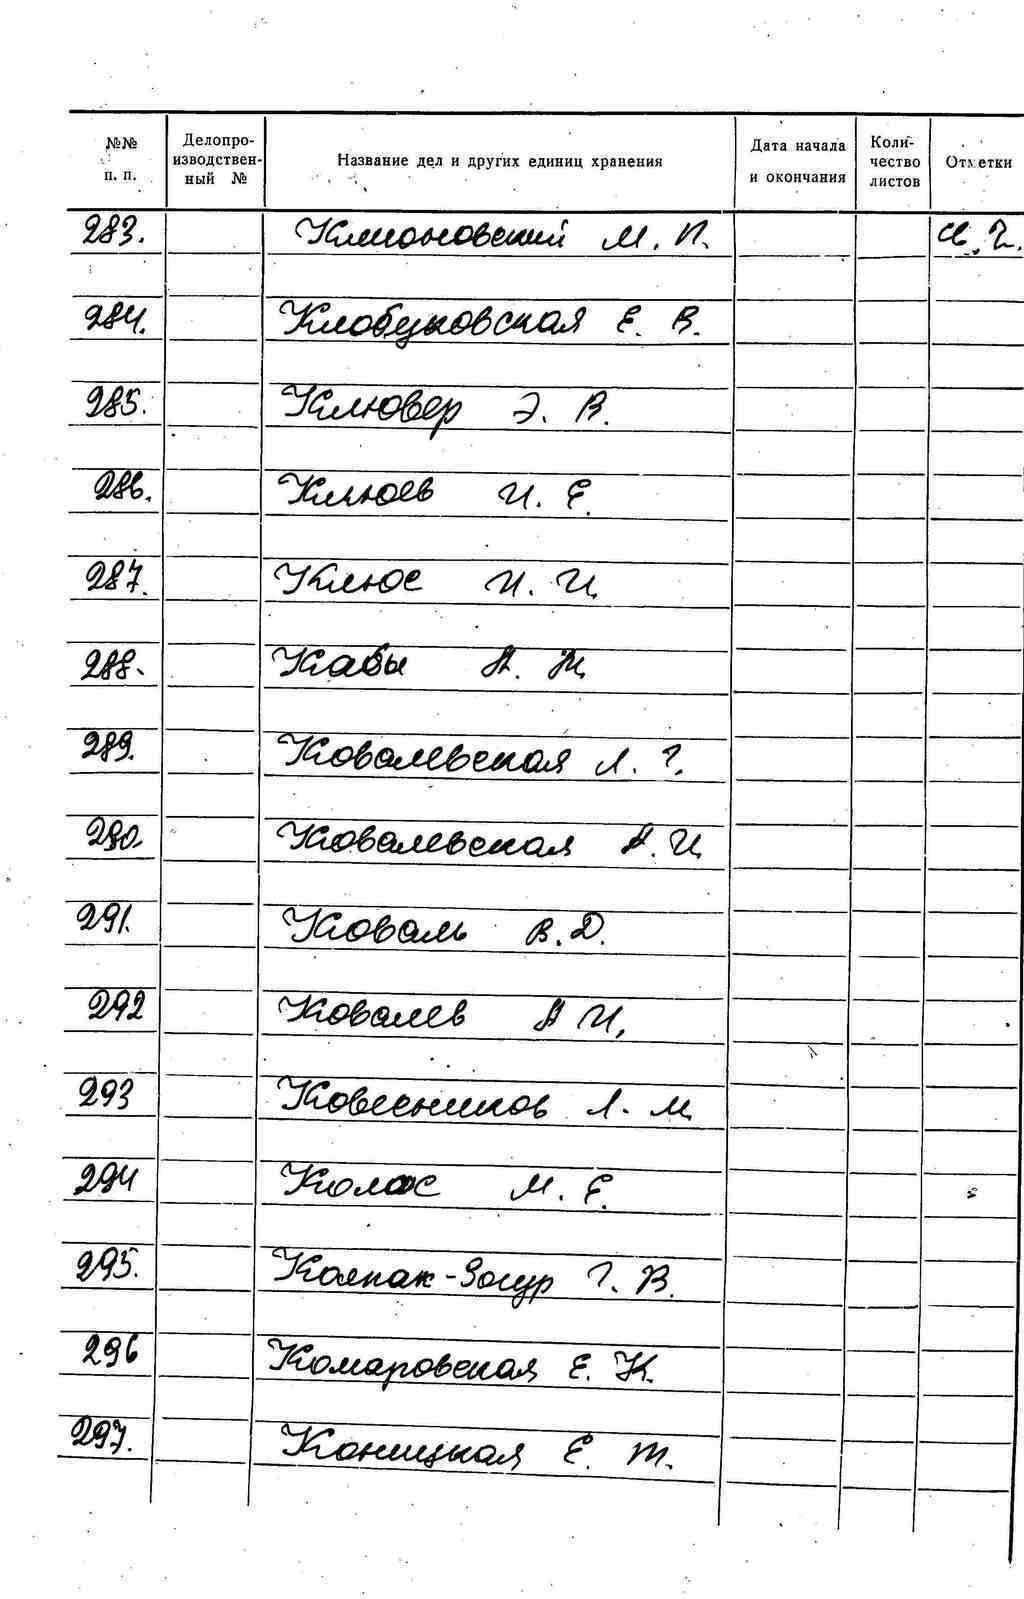 №№ п. п. Делопроизводственный № Название дел и других единиц хранения Дата начала и окончания Количество листов Отметки
283. Климоновский М. П.
284. Клобуковская Е. В.
285. Клювер Э. В.
286. Клюев И. Е.
287. Клюс И. И.
288. Кабы А. М.
289. Ковалевская Л. Г.
290. Ковалевская А. И.
291. Коваль В. Д.
292 Ковалев А И.
293 Колесников Л. М.
294 Колас М. Е.
295. Колпак-Зогур Г. В.
296 Комаровская Е. К.
297. Коницкая Е. Т.